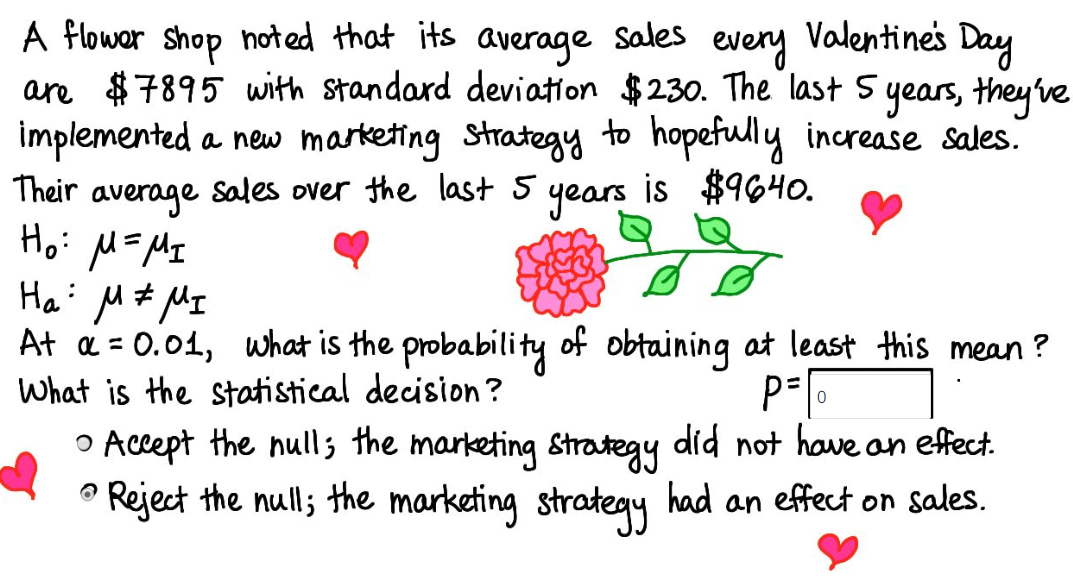 A flower shop noted that its average sales every Valentine's Day
are $7895 with standard deviation $230. The last 5 years, they've
implemented a new marketing strategy to hopefully increase sales.
Their average sales over the last 5 years is $9640.
H₀: μ = μI
Ha: μ ≠ μI
At α = 0.01, what is the probability of obtaining at least this mean?
What is the statistical decision? p= 0
Accept the null; the marketing strategy did not have an effect.
Reject the null; the marketing strategy had an effect on sales.